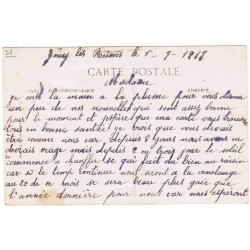 Jouy lès Reims le 5-9-1917
CARTE POSTALE
CORRESPONDANCE ADRESSE
Madame
je me la main a la plume pour vous donné
un peu de nos nouvelles qui sont assez bonne
pour le moment et j'espère que ma carte vous trouvera
tous en bonne santée je crois que vous devait
être comme nous car depuis 8 jours nous avons un
mais depuis 2 ou trois jour le soleil
commence a chauffer se qui fait du bien au raisin
car si le temp continue nous iront a la vendange
au 20 de ce mois se sera beau plus gaie que
l'année dernière pour nous car nous espéront